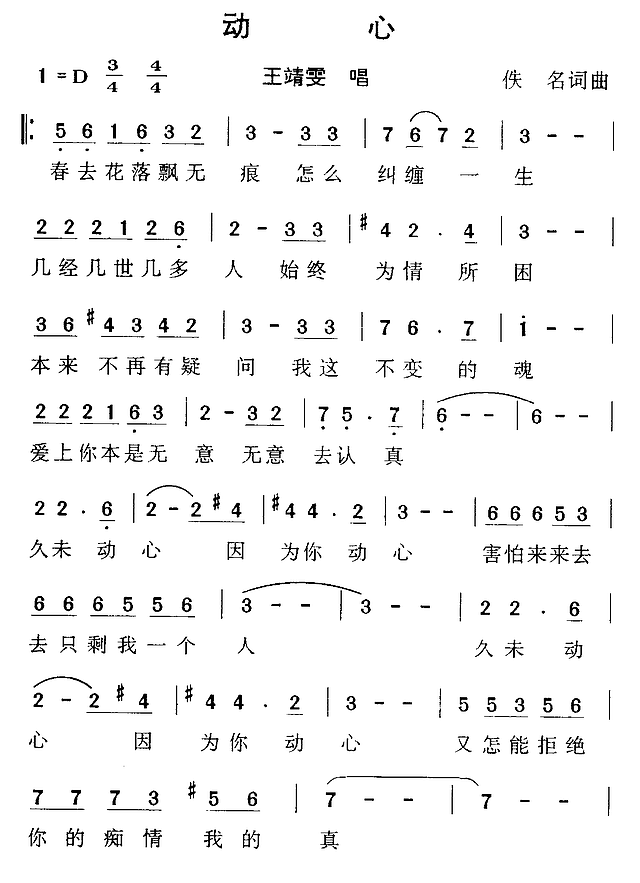 动 心
1=D 3/4 4/4 王靖雯 唱 佚 名词曲
‖: 5 6 1 6 3 2 | 3 - 3 3 | 7 6 7 2 | 3 - - |
春去花落飘无 痕 怎么 纠缠 一 生
2 2 2 1 2 6 | 2 - 3 3 | #4 2 . 4 | 3 - - |
几经几世几多 人 始终 为情 所 困
3 6 #4 3 4 2 | 3 - 3 3 | 7 6 . 7 | 1 - - |
本来 不再有疑 问 我这 不变 的 魂
2 2 2 1 6 3 | 2 - 3 2 | 7 5 . 7 | 6 - - | 6 - - |
爱上你本是无 意 无意 去认 真
2 2 . 6 | 2 - 2 #4 | #4 4 . 2 | 3 - - | 6 6 6 6 5 3 |
久未 动 心 因 为你 动 心 害怕来来去
6 6 6 5 5 6 | 3 - - | 3 - - | 2 2 . 6 |
去只剩我一个 人 久未 动
2 - 2 #4 | #4 4 . 2 | 3 - - | 5 5 3 5 5 6 |
心 因 为你 动 心 又怎能拒绝
7 7 7 3 #5 6 | 7 - - | 7 - - |
你的痴情 我的 真